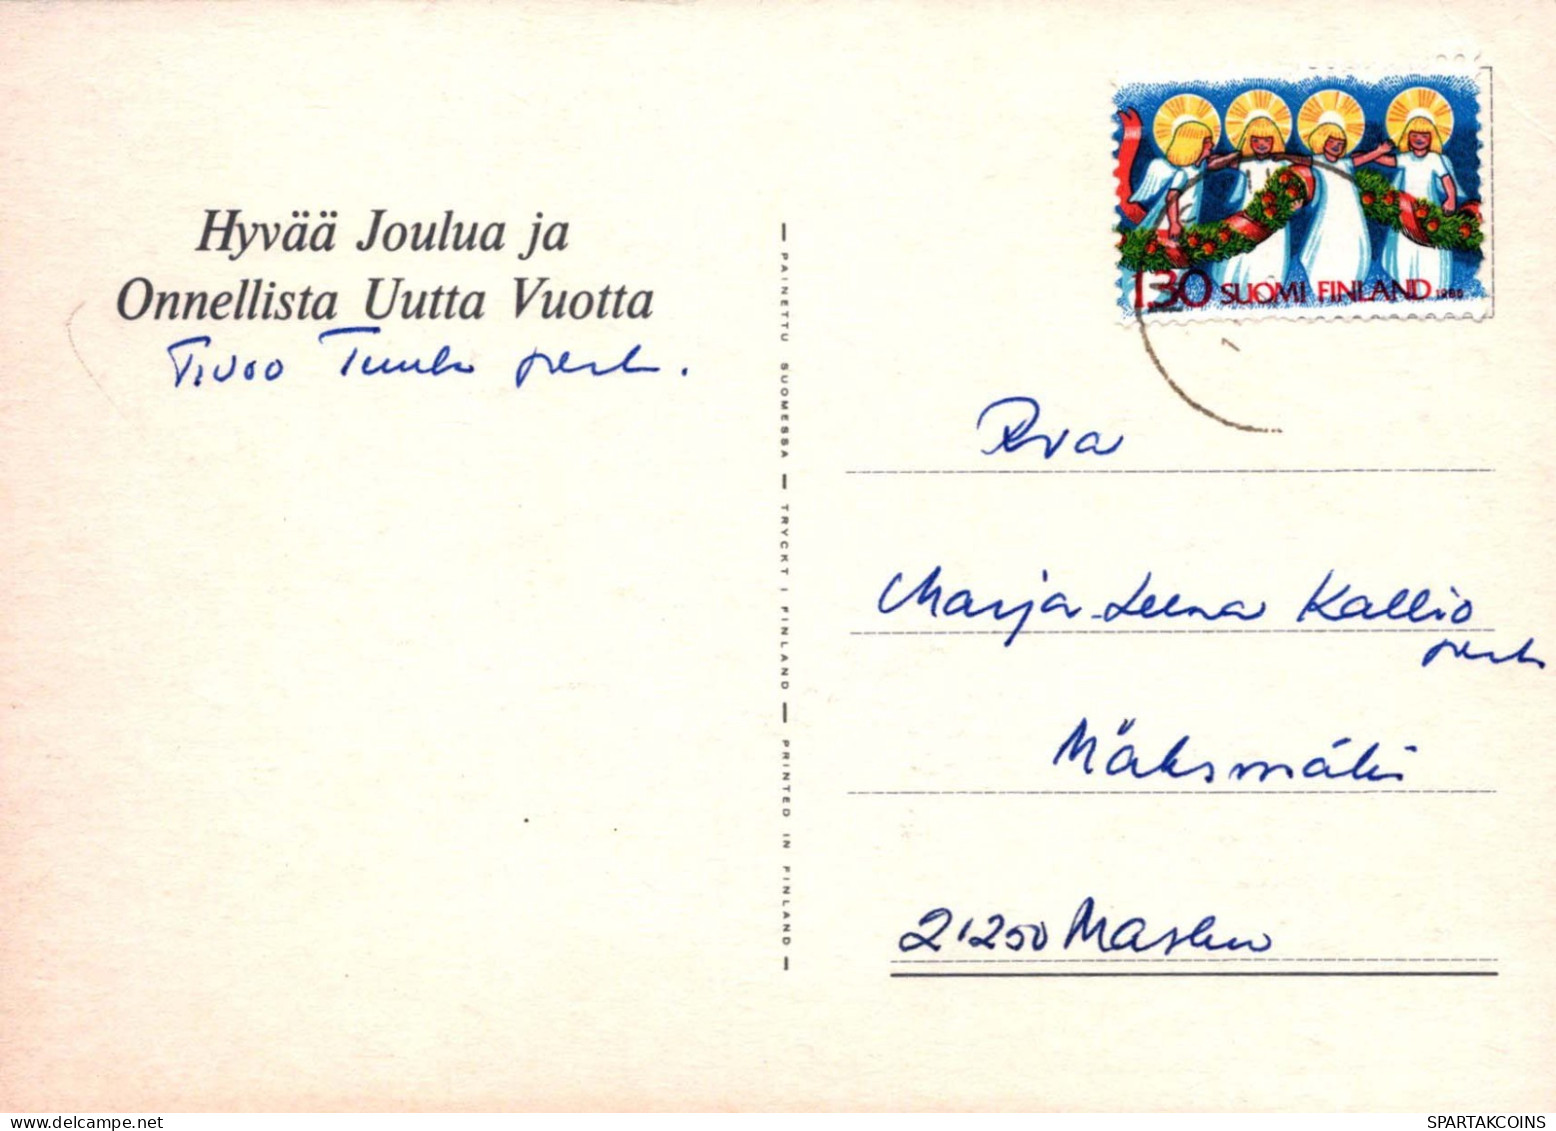 Hyvää Joulua ja
Onnellista Uutta Vuotta
Toivoo Tuula perh.
PAINETTU SUOMESSA — TRYCKT I FINLAND — PRINTED IN FINLAND
1,30 SUOMI FINLAND 1986
Rva
Marja-Leena Kallio
perh
Mäksmäki
21250 Masku
SPARTAKCOINS